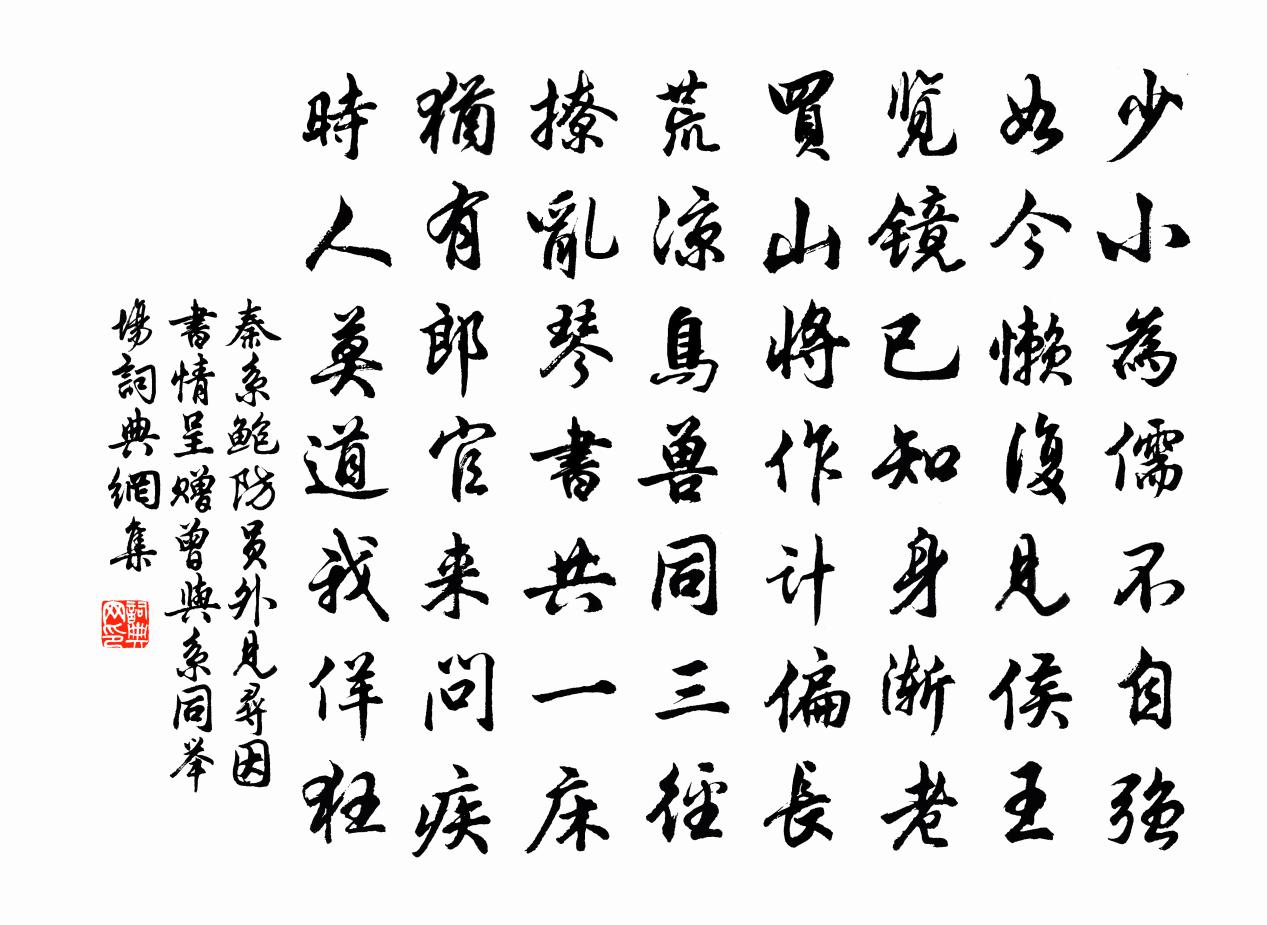 少小為儒不自強
如今懒復見侯王
覧镜已知身漸老
買山將作计偏長
荒凉鳥兽同三径
撩亂琴書共一床
猶有郎官来问疾
時人莫道我佯狂
秦系鲍防员外见尋因
書情呈赠曾與系同举
場詞典網集
詞典
网印